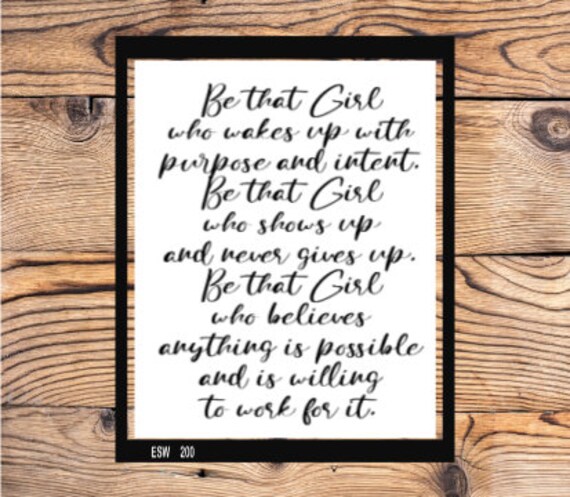 Be that Girl
who wakes up with
purpose and intent.
Be that Girl
who shows up
and never gives up.
Be that Girl
who believes
anything is possible
and is willing
to work for it.
ESW 200